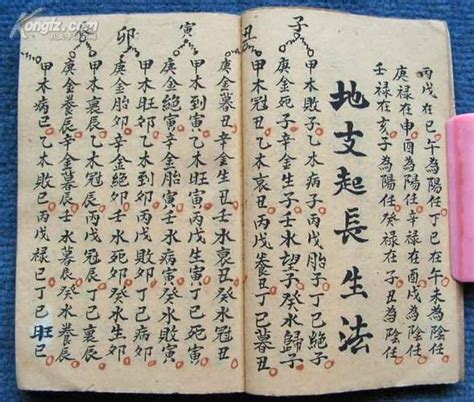 Kongfz.com
丙戊在巳午為陽任丁巳在午未為陰任
庚祿在申酉為陽任辛祿在酉戌為陰任
壬祿在亥子為陽任癸祿在子丑為陰任
地支起長生法
子
甲木敗子乙木病子丙戊胎子丁巳絕子
庚金死子辛金生子壬水望子癸水歸子
丑
甲木冠丑乙木衰丑丙戊養丑丁巳墓丑
庚金墓丑辛金生丑壬水衰丑癸水冠丑
寅
甲木到寅乙木旺寅丙戊生寅丁巳死寅
庚金絕寅辛金胎寅壬水病寅癸水敗寅
卯
甲木旺卯乙木到卯丙戊敗卯丁巳病卯
庚金胎卯辛金絕卯壬水死卯癸水生卯
甲木衰辰乙木冠辰丙戊冠辰丁巳衰辰
庚金養辰辛金墓辰壬水墓辰癸水養辰
甲木病巳乙木敗巳丙戊祿巳丁巳旺巳